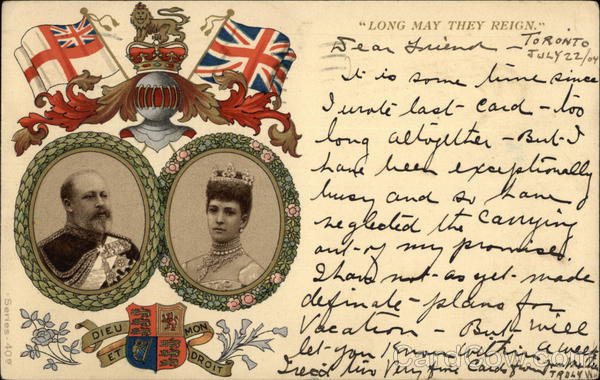 "LONG MAY THEY REIGN."
Dear Friend - TORONTO
JULY 22/04
It is some time since
I wrote last card - too
long altogether - But I
have been exceptionally
busy and so have
neglected the carrying
out of my promises.
I have not as yet made
definate plans for
Vacation - But will
let you know within a week
Recd two Very fine Cards from
TROLY
DIEU ET MON DROIT
Series-409
CardCow.com